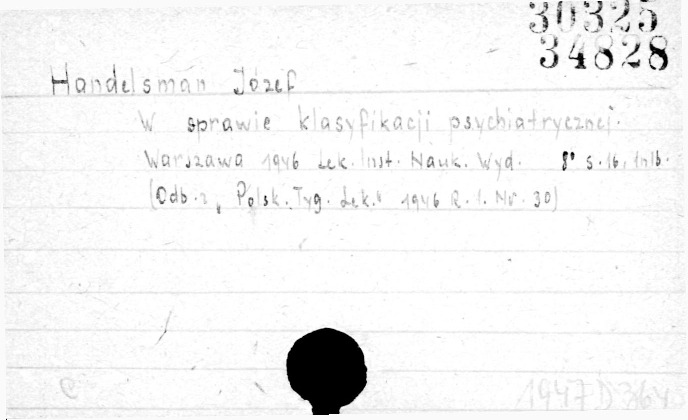 30325
34828
Handelsman Józef
W sprawie klasyfikacji psychiatrycznej.
Warszawa 1946 Lek. Inst. Nauk. Wyd. 8° s. 16, 1nlb.
(Odb. z „Polsk. Tyg. Lek." 1946 R. 1. Nr. 30)
C
1947 D